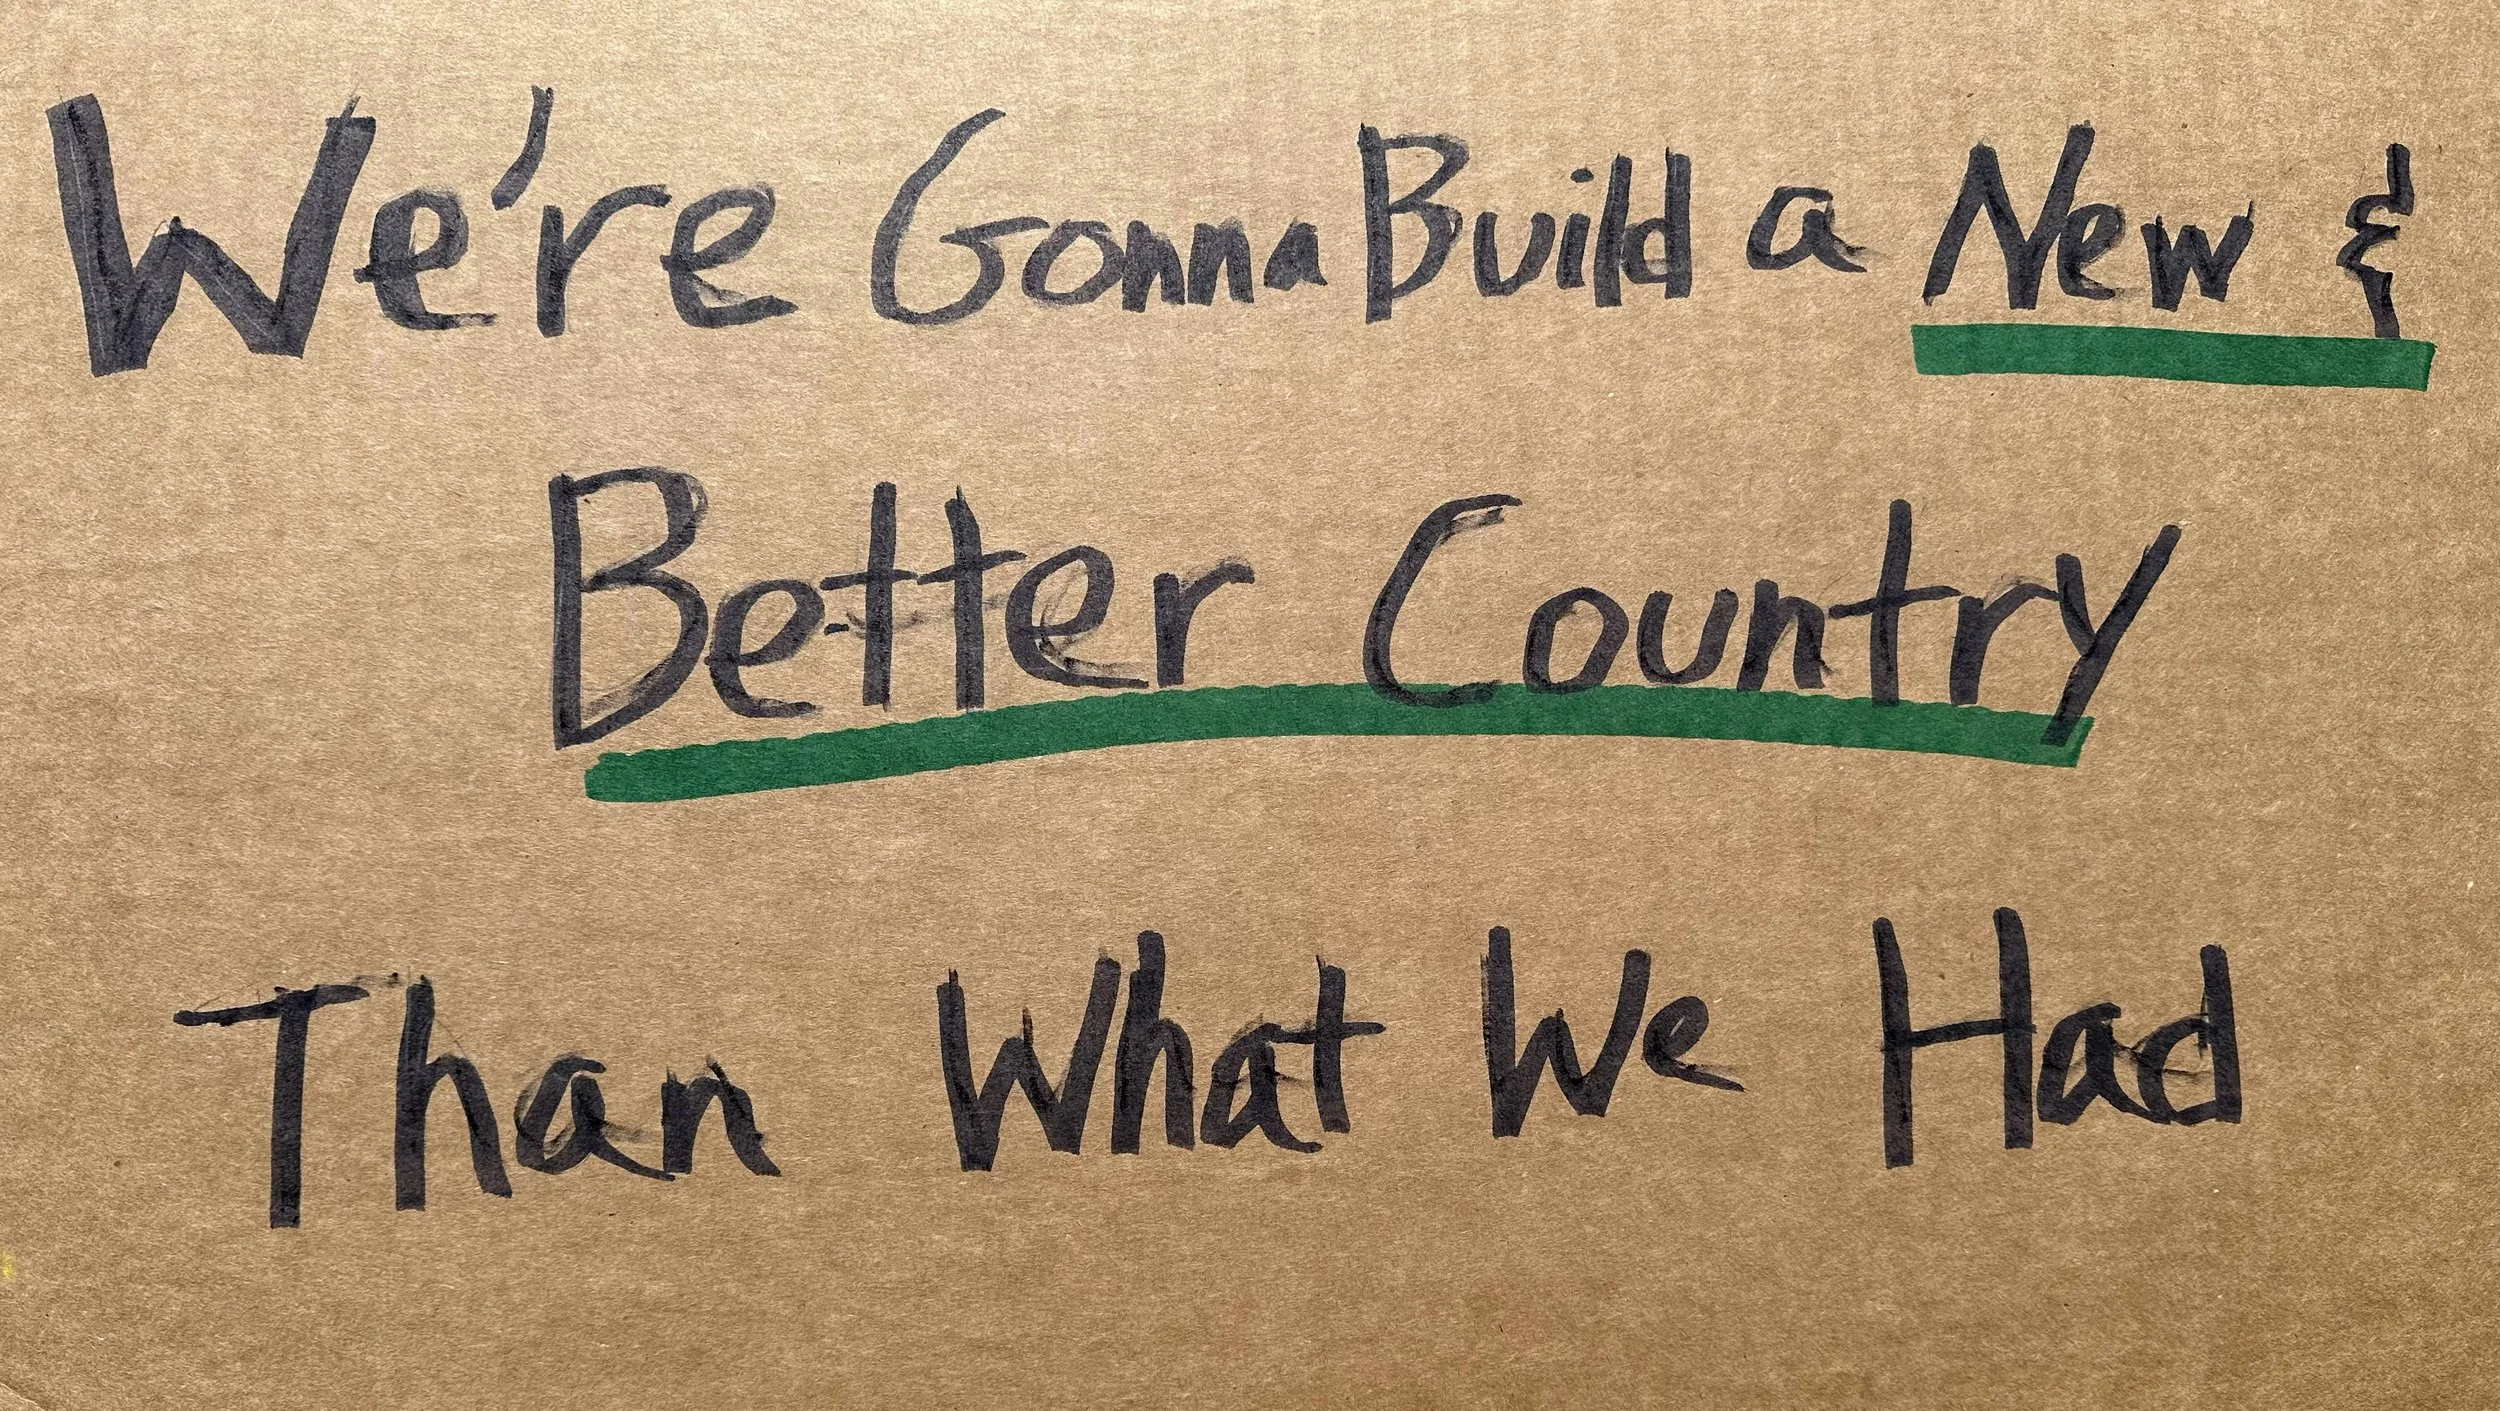 We're Gonna Build a New &
Better Country
Than What We Had